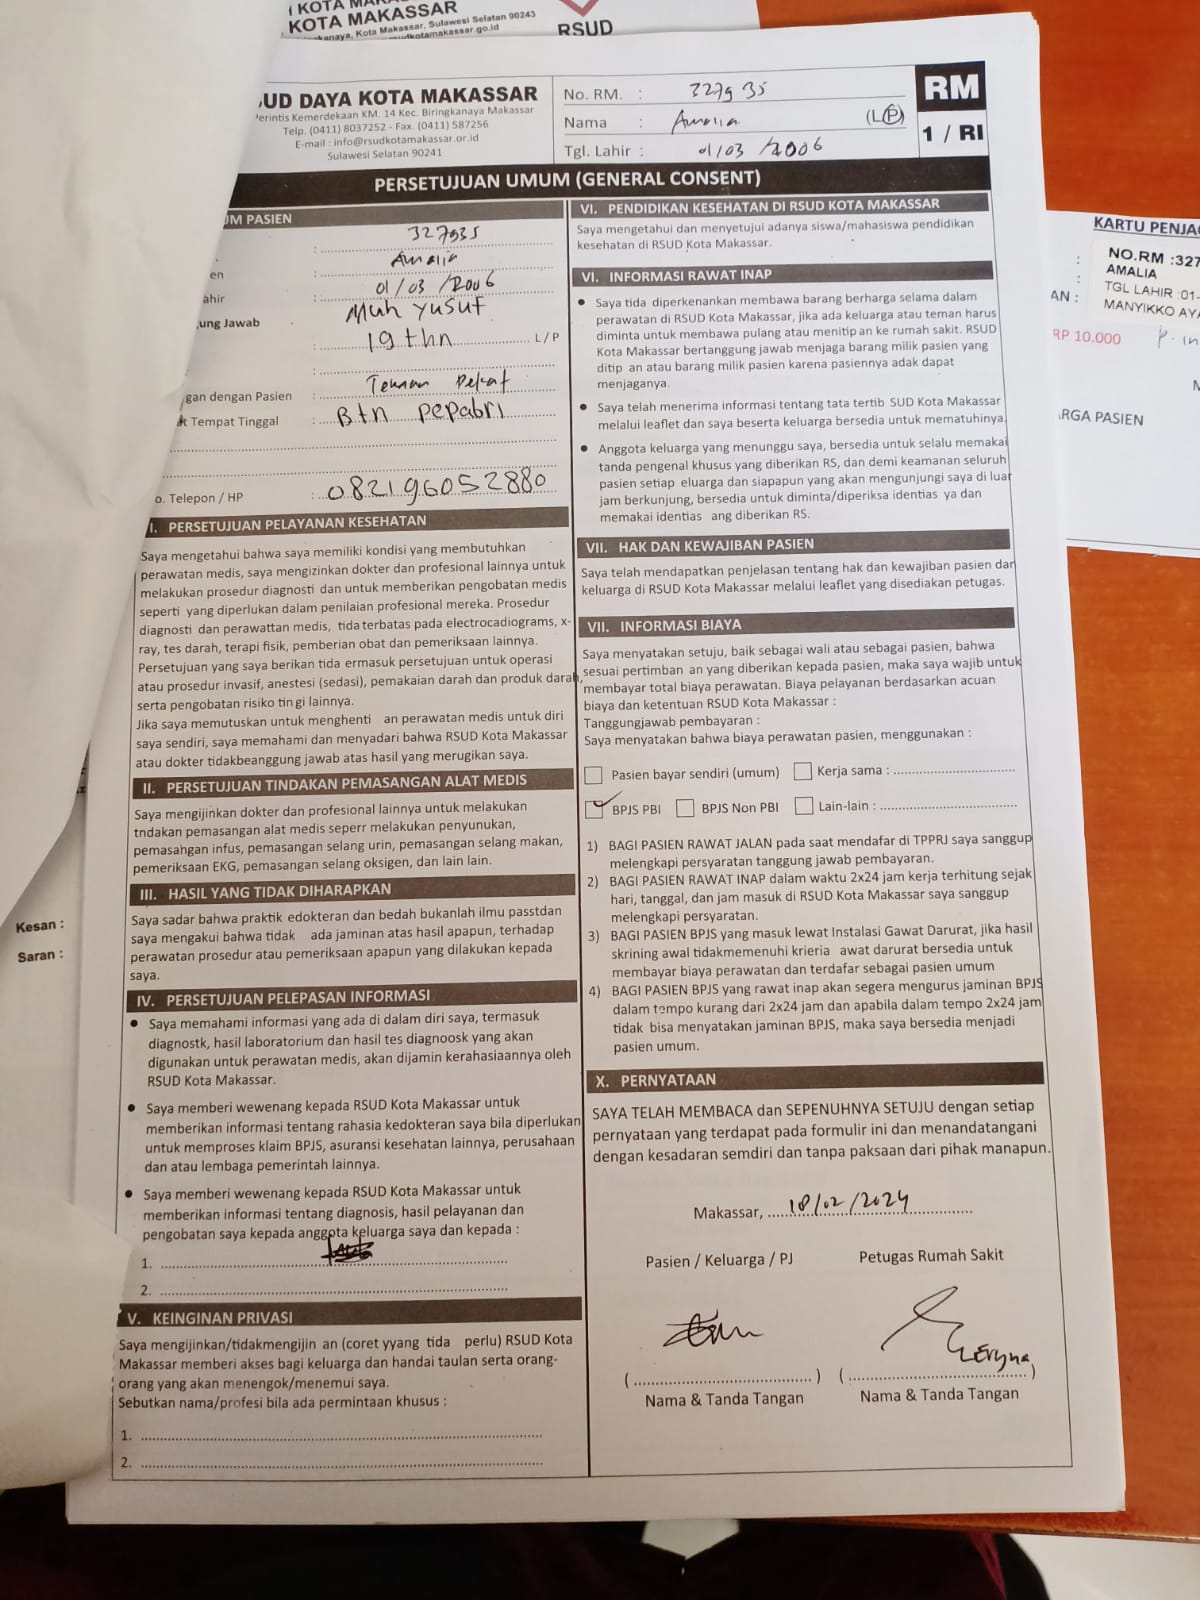 KOTA MAKASSAR
KOTA MAKASSAR
Kota Makassar, Sulawesi Selatan 90243
RSUD
UD DAYA KOTA MAKASSAR
Perintis Kemerdekaan KM. 14 Kec. Biringkanaya Makassar
Telp. (0411) 8037252 - Fax. (0411) 587256
E-mail : info@rsudkotamakassar.or.id
Sulawesi Selatan 90241
No. RM. : 327935
Nama : Amalia (L/P)
Tgl. Lahir : 01/03/2006
RM
1 / RI
PERSETUJUAN UMUM (GENERAL CONSENT)
UM PASIEN
: 327935
en : Amalia
ahir : 01/03/2006
ung Jawab Muh Yusuf
: 19 thn L / P
:
gan dengan Pasien : Teman Dekat
Tempat Tinggal : Btn Pepabri
o. Telepon / HP : 082196052880
I. PERSETUJUAN PELAYANAN KESEHATAN
Saya mengetahui bahwa saya memiliki kondisi yang membutuhkan
perawatan medis, saya mengizinkan dokter dan profesional lainnya untuk
melakukan prosedur diagnosti dan untuk memberikan pengobatan medis
seperti yang diperlukan dalam penilaian profesional mereka. Prosedur
diagnosti dan perawattan medis, tida terbatas pada electrocadiograms, x-
ray, tes darah, terapi fisik, pemberian obat dan pemeriksaan lainnya.
Persetujuan yang saya berikan tida ermasuk persetujuan untuk operasi
atau prosedur invasif, anestesi (sedasi), pemakaian darah dan produk darah,
serta pengobatan risiko tin gi lainnya.
Jika saya memutuskan untuk menghenti an perawatan medis untuk diri
saya sendiri, saya memahami dan menyadari bahwa RSUD Kota Makassar
atau dokter tidakbeanggung jawab atas hasil yang merugikan saya.
II. PERSETUJUAN TINDAKAN PEMASANGAN ALAT MEDIS
Saya mengijinkan dokter dan profesional lainnya untuk melakukan
tndakan pemasangan alat medis seperr melakukan penyunukan,
pemasahgan infus, pemasangan selang urin, pemasangan selang makan,
pemeriksaan EKG, pemasangan selang oksigen, dan lain lain.
III. HASIL YANG TIDAK DIHARAPKAN
Saya sadar bahwa praktik edokteran dan bedah bukanlah ilmu passtdan
saya mengakui bahwa tidak ada jaminan atas hasil apapun, terhadap
perawatan prosedur atau pemeriksaan apapun yang dilakukan kepada
saya.
IV. PERSETUJUAN PELEPASAN INFORMASI
• Saya memahami informasi yang ada di dalam diri saya, termasuk
diagnostk, hasil laboratorium dan hasil tes diagnoosk yang akan
digunakan untuk perawatan medis, akan dijamin kerahasiaannya oleh
RSUD Kota Makassar.
• Saya memberi wewenang kepada RSUD Kota Makassar untuk
memberikan informasi tentang rahasia kedokteran saya bila diperlukan
untuk memproses klaim BPJS, asuransi kesehatan lainnya, perusahaan
dan atau lembaga pemerintah lainnya.
• Saya memberi wewenang kepada RSUD Kota Makassar untuk
memberikan informasi tentang diagnosis, hasil pelayanan dan
pengobatan saya kepada anggota keluarga saya dan kepada :
1.
2.
V. KEINGINAN PRIVASI
Saya mengijinkan/tidakmengijin an (coret yyang tida perlu) RSUD Kota
Makassar memberi akses bagi keluarga dan handai taulan serta orang-
orang yang akan menengok/menemui saya.
Sebutkan nama/profesi bila ada permintaan khusus :
1.
2.
VI. PENDIDIKAN KESEHATAN DI RSUD KOTA MAKASSAR
Saya mengetahui dan menyetujui adanya siswa/mahasiswa pendidikan
kesehatan di RSUD Kota Makassar.
VI. INFORMASI RAWAT INAP
• Saya tida diperkenankan membawa barang berharga selama dalam
perawatan di RSUD Kota Makassar, jika ada keluarga atau teman harus
diminta untuk membawa pulang atau menitip an ke rumah sakit. RSUD
Kota Makassar bertanggung jawab menjaga barang milik pasien yang
ditip an atau barang milik pasien karena pasiennya adak dapat
menjaganya.
• Saya telah menerima informasi tentang tata tertib SUD Kota Makassar
melalui leaflet dan saya beserta keluarga bersedia untuk mematuhinya.
• Anggota keluarga yang menunggu saya, bersedia untuk selalu memakai
tanda pengenal khusus yang diberikan RS, dan demi keamanan seluruh
pasien setiap eluarga dan siapapun yang akan mengunjungi saya di luar
jam berkunjung, bersedia untuk diminta/diperiksa identias ya dan
memakai identias ang diberikan RS.
VII. HAK DAN KEWAJIBAN PASIEN
Saya telah mendapatkan penjelasan tentang hak dan kewajiban pasien dan
keluarga di RSUD Kota Makassar melalui leaflet yang disediakan petugas.
VII. INFORMASI BIAYA
Saya menyatakan setuju, baik sebagai wali atau sebagai pasien, bahwa
sesuai pertimban an yang diberikan kepada pasien, maka saya wajib untuk
membayar total biaya perawatan. Biaya pelayanan berdasarkan acuan
biaya dan ketentuan RSUD Kota Makassar :
Tanggungjawab pembayaran :
Saya menyatakan bahwa biaya perawatan pasien, menggunakan :
Pasien bayar sendiri (umum) Kerja sama :
BPJS PBI BPJS Non PBI Lain-lain :
1) BAGI PASIEN RAWAT JALAN pada saat mendafar di TPPRJ saya sanggup
melengkapi persyaratan tanggung jawab pembayaran.
2) BAGI PASIEN RAWAT INAP dalam waktu 2x24 jam kerja terhitung sejak
hari, tanggal, dan jam masuk di RSUD Kota Makassar saya sanggup
melengkapi persyaratan.
3) BAGI PASIEN BPJS yang masuk lewat Instalasi Gawat Darurat, jika hasil
skrining awal tidakmemenuhi krieria awat darurat bersedia untuk
membayar biaya perawatan dan terdafar sebagai pasien umum
4) BAGI PASIEN BPJS yang rawat inap akan segera mengurus jaminan BPJS
dalam tempo kurang dari 2x24 jam dan apabila dalam tempo 2x24 jam
tidak bisa menyatakan jaminan BPJS, maka saya bersedia menjadi
pasien umum.
X. PERNYATAAN
SAYA TELAH MEMBACA dan SEPENUHNYA SETUJU dengan setiap
pernyataan yang terdapat pada formulir ini dan menandatangani
dengan kesadaran semdiri dan tanpa paksaan dari pihak manapun.
Makassar, 18/02/2024
Pasien / Keluarga / PJ Petugas Rumah Sakit
( ) ( )
Nama & Tanda Tangan Nama & Tanda Tangan
KARTU PENJAG
NO.RM :327
AMALIA
TGL LAHIR :01-
MANYIKKO AYA
AN :
RP 10.000
ARGA PASIEN
Kesan :
Saran :